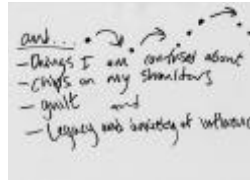 and...
- Things I am confused about
- chips on my shoulders
- guilt and
- Legacy and anxiety of influence